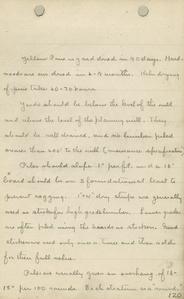 Yellow Pine is yard dried in 90 days. Hard-
woods are air dried in 6-9 months. Kiln drying
of pine takes 60-70 hours.
Yards should be below the level of the mill
and above the level of the planing mill. They
should be well drained, and no lumber piled
nearer than 200' to the mill (insurance specification)
Piles should slope 1" per ft. and a 16'
board should be on 3 foundations at least to
prevent sagging. 1"x4" dry strips are generally
used as stickers for high grade lumber. Lower grades
are often piled using the boards as stickers. Good
stickers are used only once or twice and then sold
for their full value.
Piles are usually given an overhang of 12"-
18" per 100 rounds. Each elevation is a "round."
120